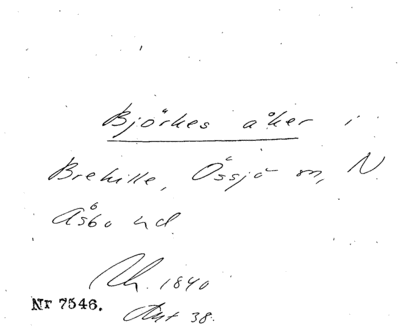 Björkes åker i
Brehille, Össjö sn, N
Åsbo hd.
Rh. 1840
Nr 7546.
Akt 38.